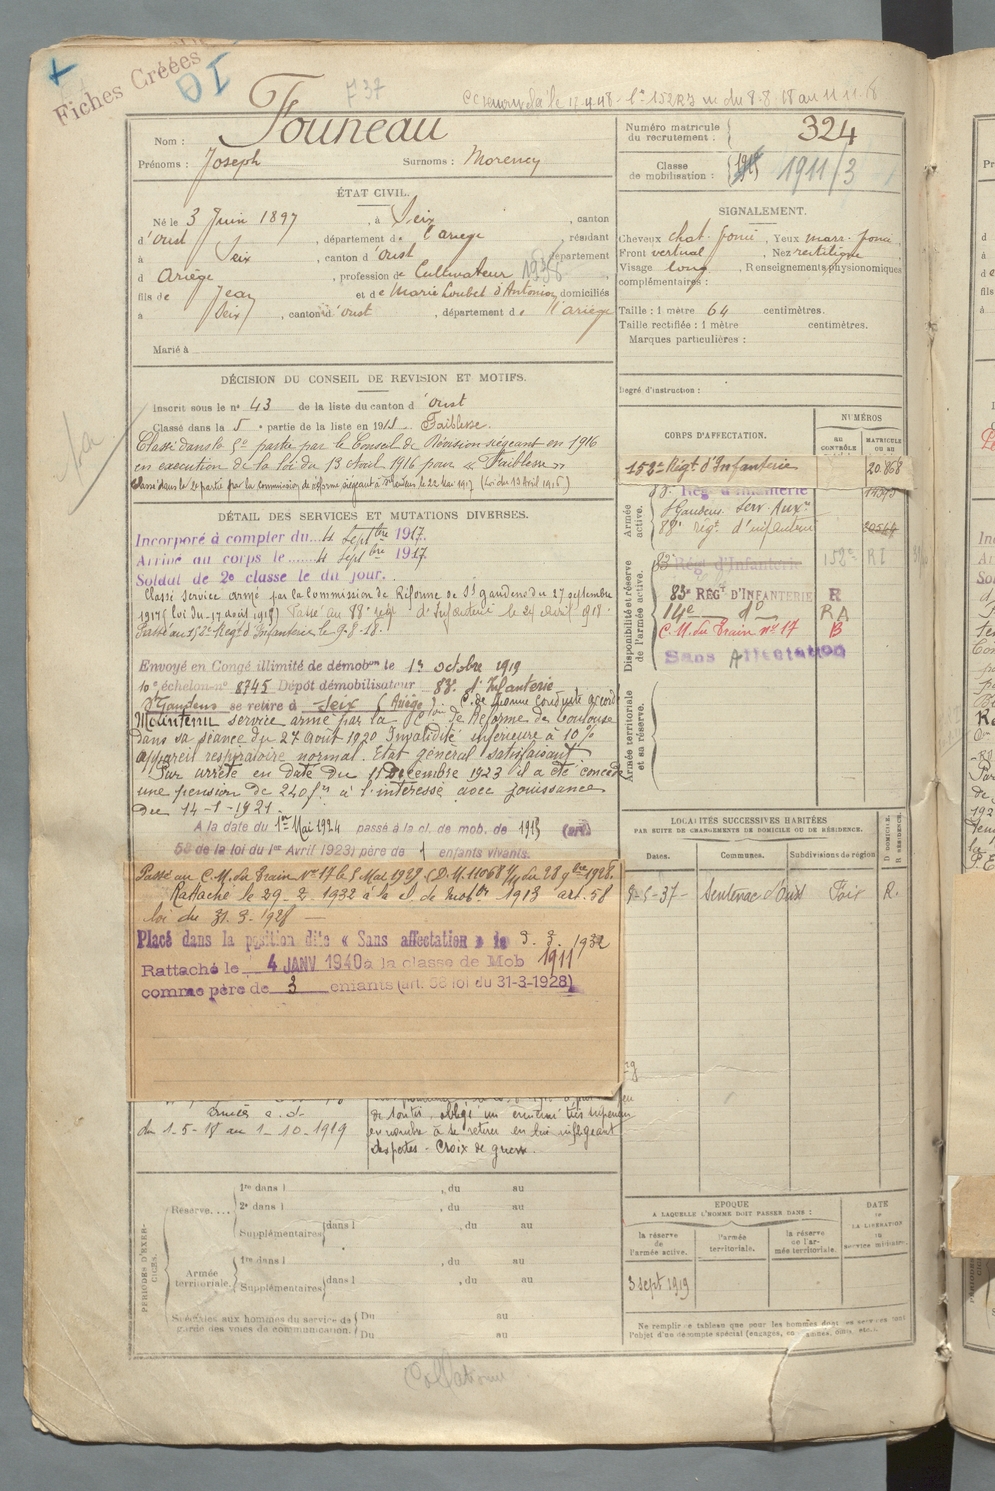 Fiches Créées
DI
F 37
Founeau
Nom :
Prénoms : Joseph Surnoms : Morency
Numéro matricule du recrutement : 324
Classe de mobilisation : 1911/3
ÉTAT CIVIL.
Né le 3 Juin 1897, à Seix, canton
d'Oust, département de l'ariège, résidant
à Seix, canton d'oust, département
d Ariège, profession de Cultivateur 1938
fils de Jean et de Marie Loubet d'Antonin domiciliés
à Seix, canton d'oust, département de l'ariège
Marié à
SIGNALEMENT.
Cheveux chat. foncé, Yeux marr. foncé
Front vertical, Nez rectiligne
Visage long, Renseignements physionomiques
complémentaires :
Taille : 1 mètre 64 centimètres.
Taille rectifiée : 1 mètre centimètres.
Marques particulières :
Degré d'instruction :
DÉCISION DU CONSEIL DE REVISION ET MOTIFS.
Inscrit sous le n° 43 de la liste du canton d'oust
Classé dans la 5e partie de la liste en 1915. Faiblesse.
Classé dans la 5e partie par le Conseil de Révision siégeant en 1916
en exécution de la loi du 13 Avril 1916 pour « Faiblesse »
DÉTAIL DES SERVICES ET MUTATIONS DIVERSES.
Incorporé à compter du 4 Septbre 1917.
Arrivé au corps le 4 Septbre 1917
Soldat de 2e classe le du jour.
Classé service armé par la Commission de Réforme de St Gaudens du 27 septembre
1917 (loi du 17 août 1918) Passé au 88e régt d'Infanterie le 21 avril 1918.
Passé au 152e Régt d'Infanterie le 9.8.18.
Envoyé en Congé illimité de démobon le 13 octobre 1919
10e échelon n° 8745 Dépôt démobilisateur 83e d'Infanterie
St Gaudens se retire à Seix (Ariège). C. de bonne conduite accordé
Maintenu service armé par la Con de Réforme de Toulouse
dans sa séance du 27 août 1920 Invalidité inférieure à 10%
appareil respiratoire normal. Etat général satisfaisant
Par arrêté en date du 11 Décembre 1923 il a été concédé
une pension de 240 frs à l'intéressé avec jouissance
du 14-1-1921.
A la date du 1er Mai 1924 passé à la cl. de mob. de 1915 (art.
58 de la loi du 1er Avril 1923) père de 1 enfants vivants.
Passé au C.M. du Train N° 17 le 5 Mai 1929 (D.M. 11068 du 28 9bre 1928.
Rattaché le 29-2-1932 à la cl. de Mobon 1913 art. 58
loi du 31.3.1928
Placé dans la position dite « Sans affectation » le 3. 3. 1932
Rattaché le 4 JANV 1940 à la classe de Mob 1911
comme père de 3 enfants (art. 58 loi du 31-3-1928)
du 1-5-18 au 1-10-1919
de toutes, obligé un ennemi très supérieur
en nombre à se retirer en lui infligeant
des pertes - Croix de guerre.
CORPS D'AFFECTATION.
NUMÉROS
AU CONTRÔLE
MATRICULE OU AU
152e Régt d'Infanterie 20.868
Rég. d'Infanterie
St Gaudens Serv. Auxre
88e régt d'infanterie
Armée active.
Disponibilité et réserve de l'armée active.
83e Rég. d'Infanterie 158e RI
83e RÉGt D'INFANTERIE R
14e do RA
C.M. du Train n° 17 B
Sans Affectation
Armée territoriale et sa réserve.
LOCALITÉS SUCCESSIVES HABITÉES
PAR SUITE DE CHANGEMENTS DE DOMICILE OU DE RÉSIDENCE.
Dates. Communes. Subdivisions de région D. DOMICILE. R. RÉSIDENCE.
9-5-37- Sentenac d'Oust Foix R.
PÉRIODES D'EXERCICES.
Réserve....
1re dans l , du au
2e dans l , du au
Supplémentaires dans l , du au
Armée territoriale.
1re dans l , du au
Supplémentaires dans l , du au
Spéciales aux hommes du service de garde des voies de communication.
Du au
Du au
EPOQUE
A LAQUELLE L'HOMME DOIT PASSER DANS :
la réserve de l'armée active.
l'armée territoriale.
la réserve de l'armée territoriale.
DATE DE LA LIBÉRATION DU SERVICE MILITAIRE.
3 sept 1919
Ne remplir ce tableau que pour les hommes dont les services font
l'objet d'un décompte spécial